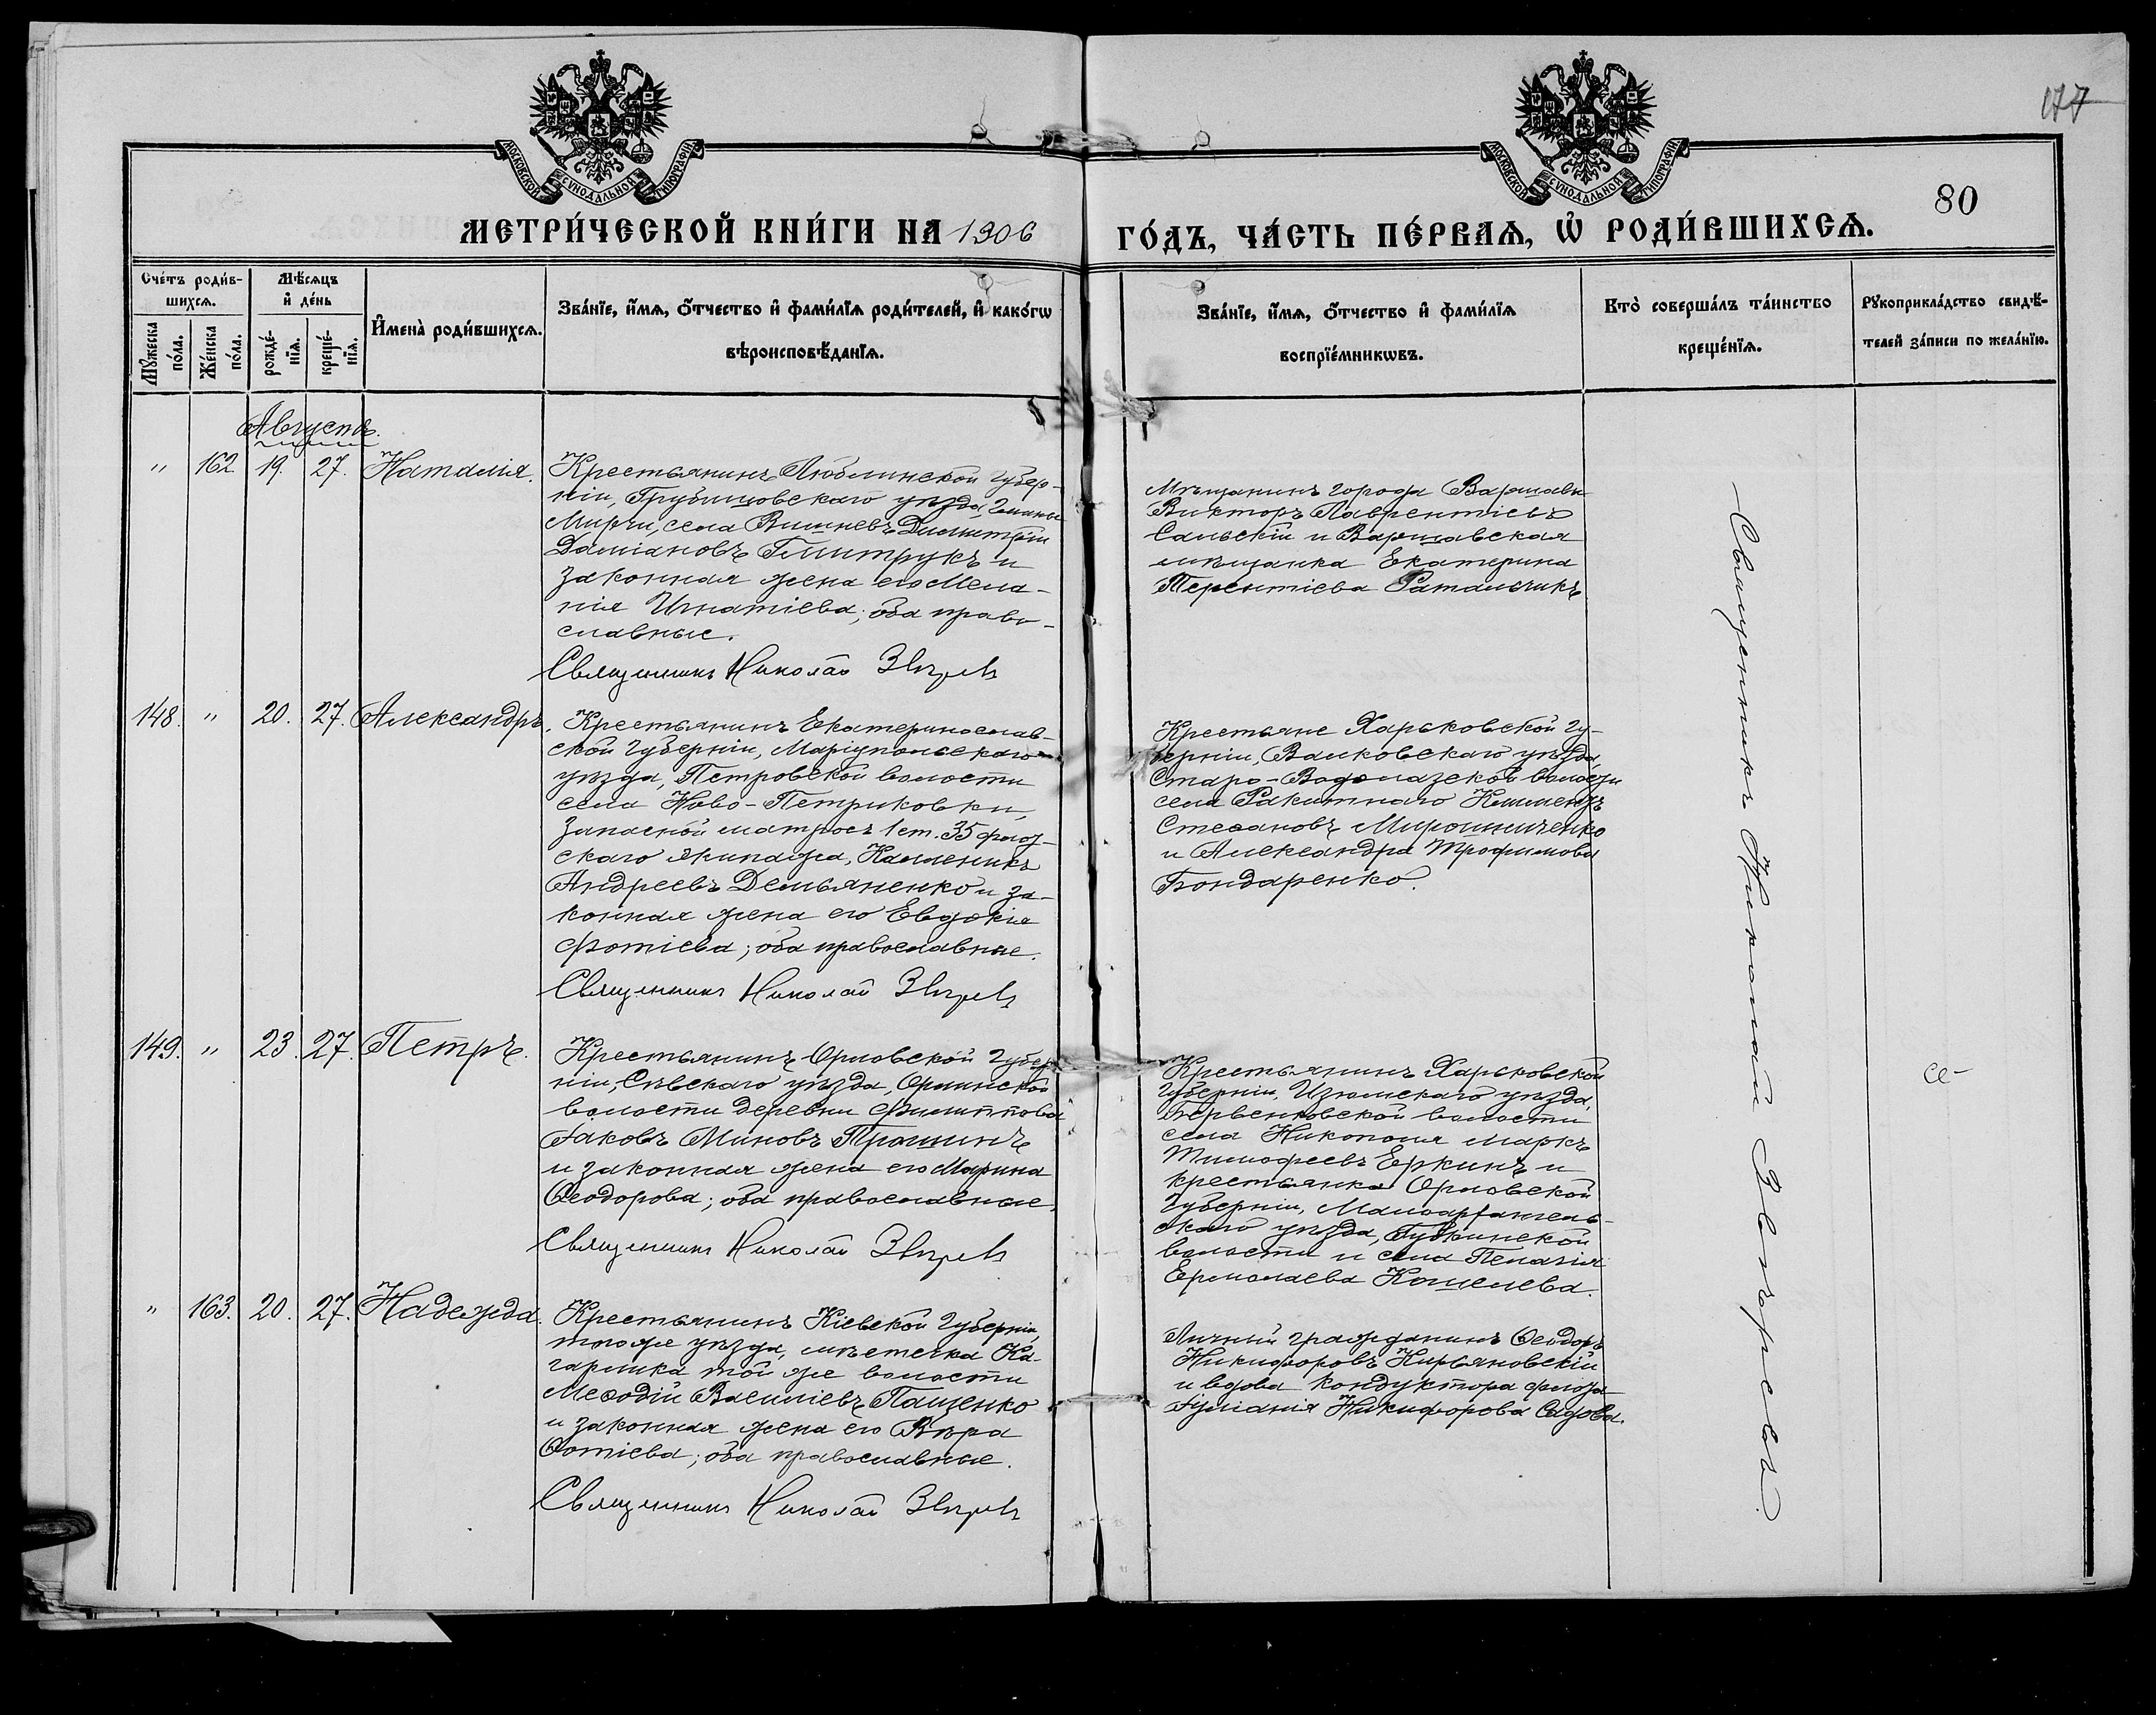 177
МОСКОВСКОЙ СѴНОДАЛЬНОЙ ТИПОГРАФІИ
МОСКОВСКОЙ СѴНОДАЛЬНОЙ ТИПОГРАФІИ
80
МЕТРИ́ЧЕСКОЙ КНИ́ГИ НА 1906
ГО́ДЪ, ЧА́СТЬ ПЕ́РВАѦ, Ѡ҆ РОДИ́ВШИХСѦ.
Сче́тъ роди́в-
шихсѧ.
Мꙋ́жеска по́ла.
Же́нска по́ла.
Мѣ́сѧцъ
и҆ де́нь
рожде́-
нїѧ.
креще́-
нїѧ.
И҆мена̀ роди́вшихсѧ.
Зва́нїе, и҆́мѧ, ѻ҆́тчество и҆ фами́лїѧ роди́телей, и҆ како́гѡ
вѣроисповѣ́данїѧ.
Зва́нїе, и҆́мѧ, ѻ҆́тчество и҆ фами́лїѧ
воспрїе́мникѡвъ.
Кто̀ соверша́лъ та́инство
креще́нїѧ.
Рꙋкоприкла́дство свидѣ́-
телей за́писи по жела́нїю.
Августъ.
" 162. 19. 27. Наталія.
Крестьянинъ Люблинской губер-
ніи, Грубешовскаго уѣзда, гмины
Мирчи, села Вишневъ Димитрій
Даміановъ Гмитрукъ и
законная жена его Мела-
нія Игнатіева; оба право-
славные.
Священникъ Николай Звѣревъ
Мѣщанинъ города Варшавы
Викторъ Лаврентіевъ
Сальскій и Варшавская
мѣщанка Екатерина
Терентіева Ратальчикъ
148. " 20. 27. Александръ.
Крестьянинъ Екатеринослав-
ской губерніи, Маріупольскаго
уѣзда, Петровской волости
села Ново-Петриковки,
запасной матросъ 1 ст. 35 флот-
скаго экипажа, Каллиникъ
Андреевъ Демьяненко и за-
конная жена его Евдокія
Фотіева; оба православные.
Священникъ Николай Звѣревъ
Крестьяне Харьковской гу-
берніи, Валковскаго уѣзда,
Старо-Водолазской волости
села Ракитнаго Климентъ
Стефановъ Мирошниченко
и Александра Трофимова
Бондаренко.
149. " 23. 27. Петръ.
Крестьянинъ Орловской губер-
ніи, Сѣвскаго уѣзда, Орлинской
волости деревни Филиппова
Іаковъ Миновъ Трошинъ
и законная жена его Марина
Ѳеодорова; оба православные.
Священникъ Николай Звѣревъ
Крестьянинъ Харьковской
губерніи, Изюмскаго уѣзда,
Барвенковской волости
села Никополя Маркъ
Тимофеевъ Еркинъ и
крестьянка Орловской
губерніи, Малоархангель-
скаго уѣзда, Губкинской
волости и села Пелагія
Ермолаева Кошелева.
" 163. 20. 27. Надежда.
Крестьянинъ Кіевской губерніи,
того же уѣзда, мѣстечка Ка-
гарлика той же волости
Меѳодій Василіевъ Пащенко
и законная жена его Вѣра
Фотіева; оба православные.
Священникъ Николай Звѣревъ
Личный гражданинъ Ѳеодоръ
Никифоровъ Кирьяновскій
и вдова кондуктора флота
Іуліанія Никифорова Садова.
Священникъ Николай Звѣревъ.